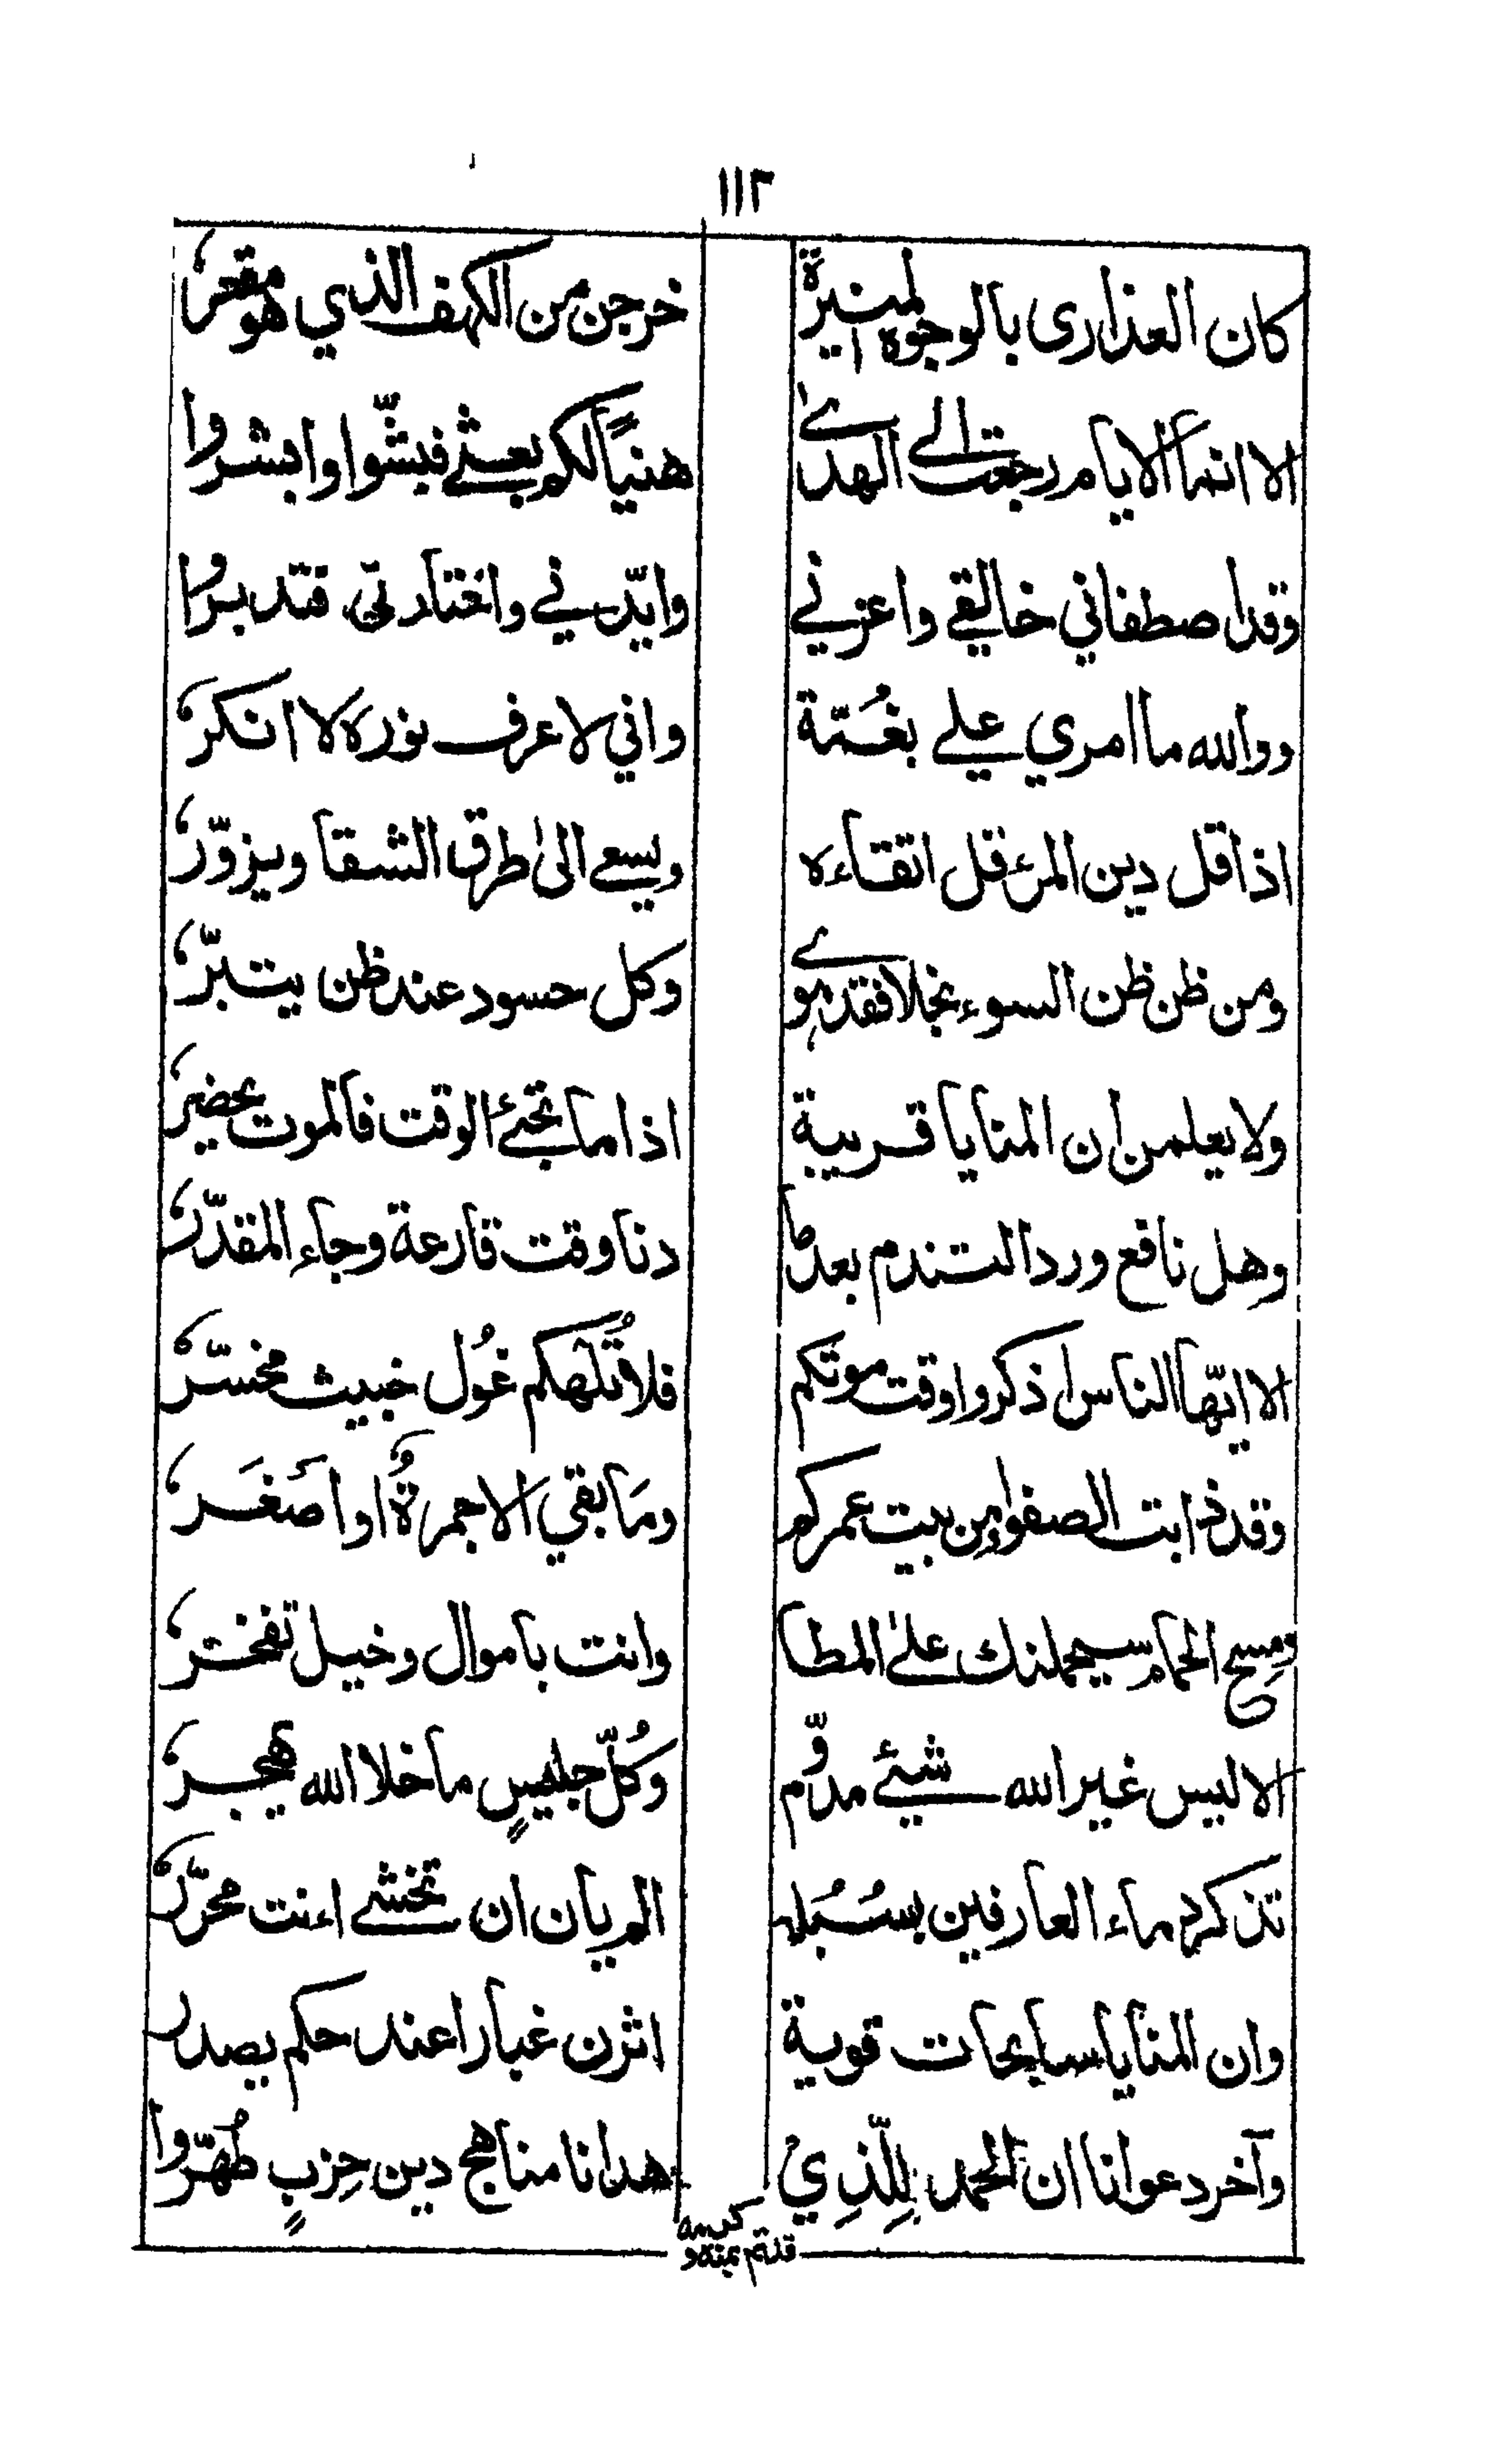 ١١٢
كان العذارى بالوجوه المنيرة خرجن من الكهف الذي هو مقعر
الا انما الايام رجعت الى الهدى هنيًا لكم بعثي فبشّوا وابشروا
وقد اصطفاني خالقي واعزني وايّدني واختارني فتدبروا
ووالله ما امري علي بغُمّة واني لاعرف نوره لا انكر
اذا قل دين المرء قل اتقاءه ويسعى الى طرق الشقا ويزوّر
ومن ظن ظن السوء بخلا فقد هوى وكل حسود عند ظن يتبّر
ولا يعلمن ان المنايا قريبة اذا ما تجئ الوقت فالموت يحضر
وهل نافع ورد التندم بعدما دنا وقت قارعة وجاء المقدّر
الا ايّها الناس اذكروا وقت موتكم فلا تُلهكم غُول خبيث مخسّر
وقد ذابت الصفواء من بيت عمركم ومَا بقي الا جمرةٌ او اَصغَر
ومسح الحمام سيحملنك على المطا وانت باموال وخيل تفخر
الا ليس غير الله شيئ مدوّم وكُلّ جليسٍ ما خلا الله يهجر
تذكر دماء العارفين بسُبُله الم يان ان تخشى ءانت محرّر
وان المنايا سابحات قوية اثرن غبارا عند حكم يصدر
وآخر دعوانا ان الحمد للّذِي هدانا مناهج دين حِزبٍ طُهّروا